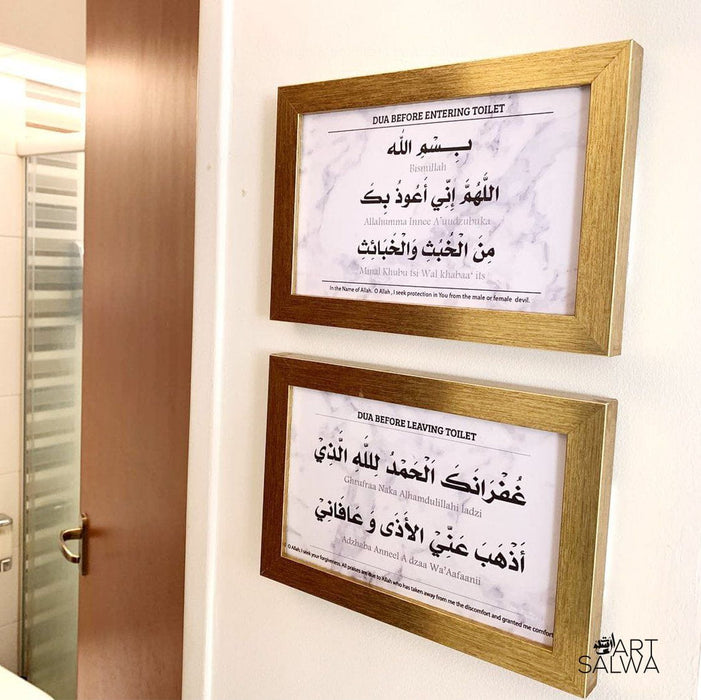 DUA BEFORE ENTERING TOILET
بِسْمِ اللّٰه
Bismillah
اللّٰهُمَّ إِنِّي أَعُوذُ بِكَ
Allahumma Innee A'uudzubuka
مِنَ الْخُبُثِ وَالْخَبَائِثِ
Minal Khubu tsi Wal khabaa' its
In the Name of Allah. O Allah, I seek protection in You from the male or female devil.
DUA BEFORE LEAVING TOILET
غُفْرَانَكَ اَلْحَمْدُ لِلّٰهِ الَّذِيْ
Ghrufraa Naka Alhamdulillahi ladzi
أَذْهَبَ عَنِّيْ الأَذَى وَ عَافَانِيْ
Adzhaba Anneel A dzaa Wa'Aafaanii
O Allah, I seek your forgiveness. All praises are due to Allah who has taken away from me the discomfort and granted me comfort
ART
SALWA